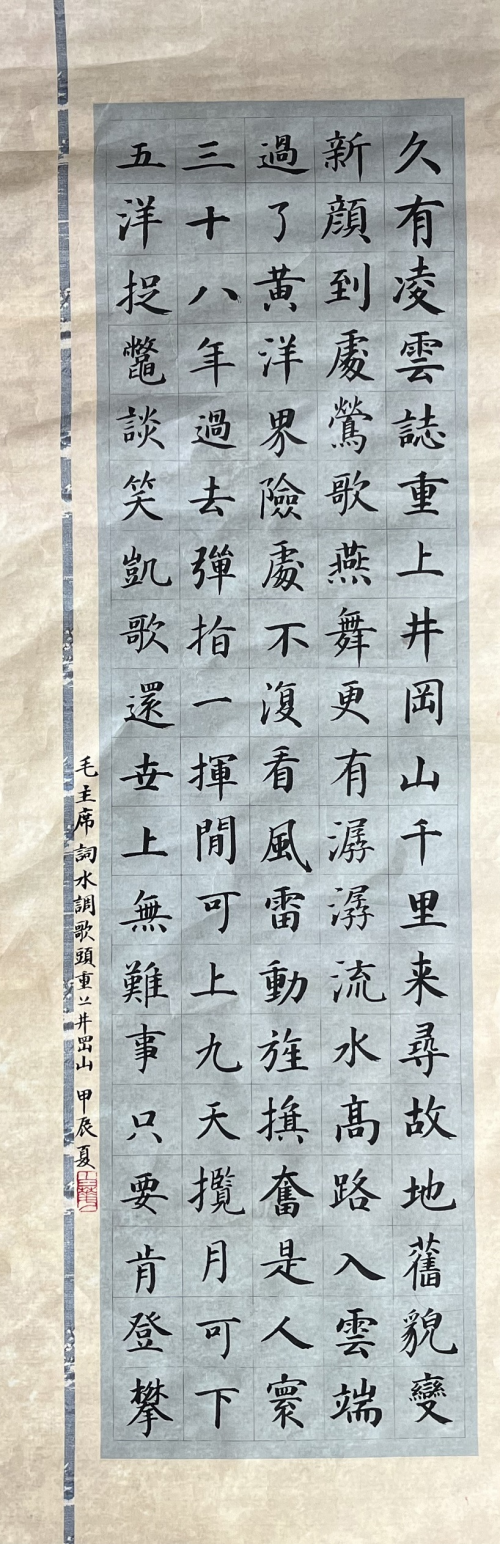 久有凌雲誌重上井岡山千里来尋故地舊貌變
新顔到處鶯歌燕舞更有潺潺流水高路入雲端
過了黃洋界險處不復看風雷動旌旗奮是人寰
三十八年過去彈指一揮間可上九天攬月可下
五洋捉鼈談笑凱歌還世上無難事只要肯登攀
毛主席詞水調歌頭重上井岡山 甲辰夏